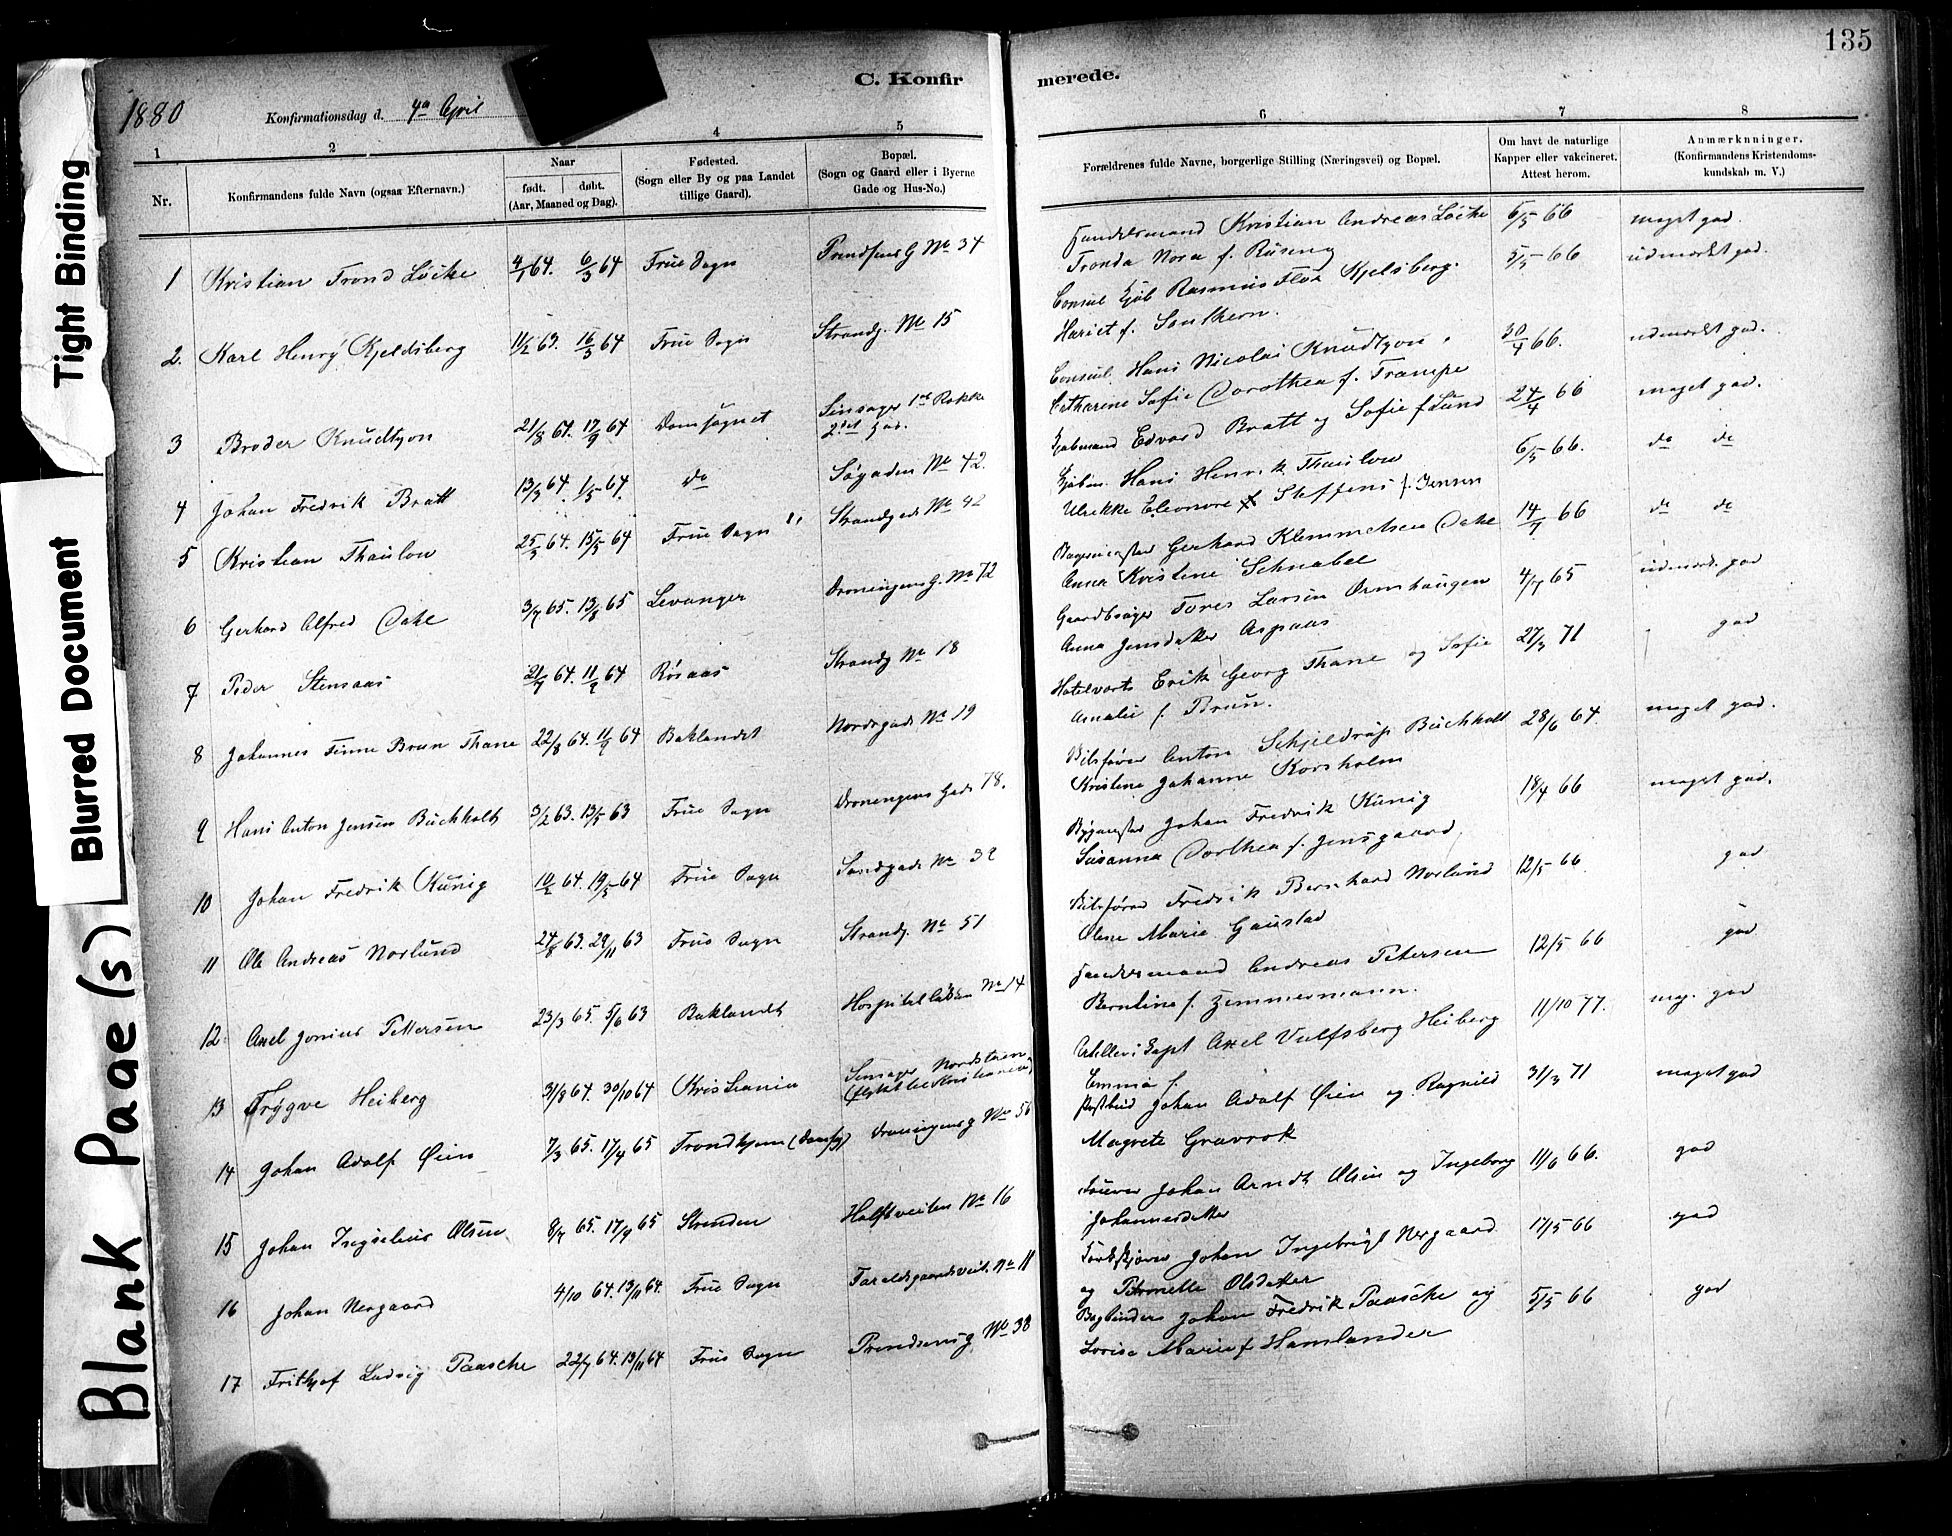 135
C. Konfir
merede.
1880
Konfirmationsdag d. 4de April
1
2
4
5
6
7
8
Nr.
Konfirmandens fulde Navn (ogsaa Efternavn.)
Naar
født. døbt.
(Aar, Maaned og Dag).
Fødested.
(Sogn eller By og paa Landet
tillige Gaard).
Bopæl.
(Sogn og Gaard eller i Byerne
Gade og Hus-No.)
Forældrenes fulde Navne, borgerlige Stilling (Næringsvei) og Bopæl.
Om havt de naturlige
Kapper eller vakcineret.
Attest herom.
Anmærkninger.
(Konfirmandens Kristendoms-
kundskab m. V.)
1 Kristian Trond Løcke 4/1 64. 6/3 64 Frue Sogn No 34
Handelsmand Kristian Andreas Løcke 6/5 66 meget god.
Tronda Nora f. 
2. Karl Henry Kjeldsberg 11/2 63. 16/3 64 Frue Sogn Strandg. No 15
Consul Rasmus Kjelsberg. 5/5 66 udmærket god.
Hariet f. Soulhern.
3 Broder Knudtzon 21/8 64. 17/9 64 Domsognet 1ste Række
Consul Hans Nicolai Knudtzon. 30/4 66. udmærket god.
Catharine Sofie Dorothea f. Trampe
4 Johan Fredrik Bratt 13/3 64. 1/5 64. do Søgaden No 42.
Kjøbmand Edvard Bratt og Sofie f Lund 24/4 66 meget god.
5 Kristian Thaulow 25/3 64. 15/5 64 Frue Sogn Strandgade No 42
Kjøbm. Hans Henrik Thaulow 6/5 66. do do
Ulrikke Eleonore Steffens f. Jensen
6 Gerhard Alfred Dahl 3/7 65. 13/8 65 Levanger Dronningens G. No 72
Gerhard Klemmetsen Dahl 14/7 66 do do
Anna Kristine Schnabel
7 Peder Stensaas 21/7 64. 11/9 64 Røraas Strandg No 18
Tøres Larsen Ormhaugen 4/7 65 udmærk. god
Anna Jensdatter Aspaas
8 Johannes Finne Brun Thane 22/8 64. 11/9 64 Baklandet Nordregade No 19
Hotelvært Erik Georg Thane og Sofie 27/3 71 god
Amalie f. Brun.
9 Hans Anton Jensen Buchholt 3/2 63. 13/5 63 Frue Sogn Dronningens Gade 78.
Anton Schjeldrup Buchholt 28/6 64. meget god.
Kristine Johanne Korsholm
10 Johan Fredrik Kunig 10/2 64. 19/5 64 Frue Sogn Sandgade No 32
Bygmester Johan Fredrik Kunig 18/4 66 meget god.
Susanna Dorthea f. Jensgaard
11 Ole Andreas Norlund 24/8 63. 29/11 63 Frue Sogn Strandg. No 51
Fredrik Bernhard Norlund 12/5 66. god
Oline Marie Gaustad
12. Axel Jonius Pettersen 23/3 65. 5/6 63 Baklandet Hospitalsløkken No 14
Handelsmand Andreas Petersen 12/5 66 god
Berntine f. Zimmermann.
13 Trygve Heiberg 31/8 64. 30/10 64 Kristiania
Artilleri Kapt Axel Vulfsberg Heiberg 11/10 77. meg. god
Emmia f.
14 Johan Adolf Øien 7/3 65. 17/4 65 Trondhjem (Domsg) Dronningensg No 56
Postbud Johan Adolf Øien og Ragnild 31/3 71 meget god
Magrete Gravrok
15 Johan Olsen 8/7 65. 17/9 65 Strinden Halfveiten No 16
Johan Arndt Olsen og Ingeborg 11/6 66. god
Johannesdatter
16 Johan Nergaard 4/10 64. 13/11 64. Frue Sogn Taraldsgaardsveit. No 11
Johan Ingebrigt Nergaard 17/5 66 god
og Petronelle Olsdatter
17 Frithjof Ludvig Paasche 22/7 64. 13/11 64 Frue Sogn No 38
Bogbinder Johan Fredrik Paasche og 5/5 66 god
Lovise Marie f Hamlander
Tight Binding
Blurred Document
Blank Page(s)